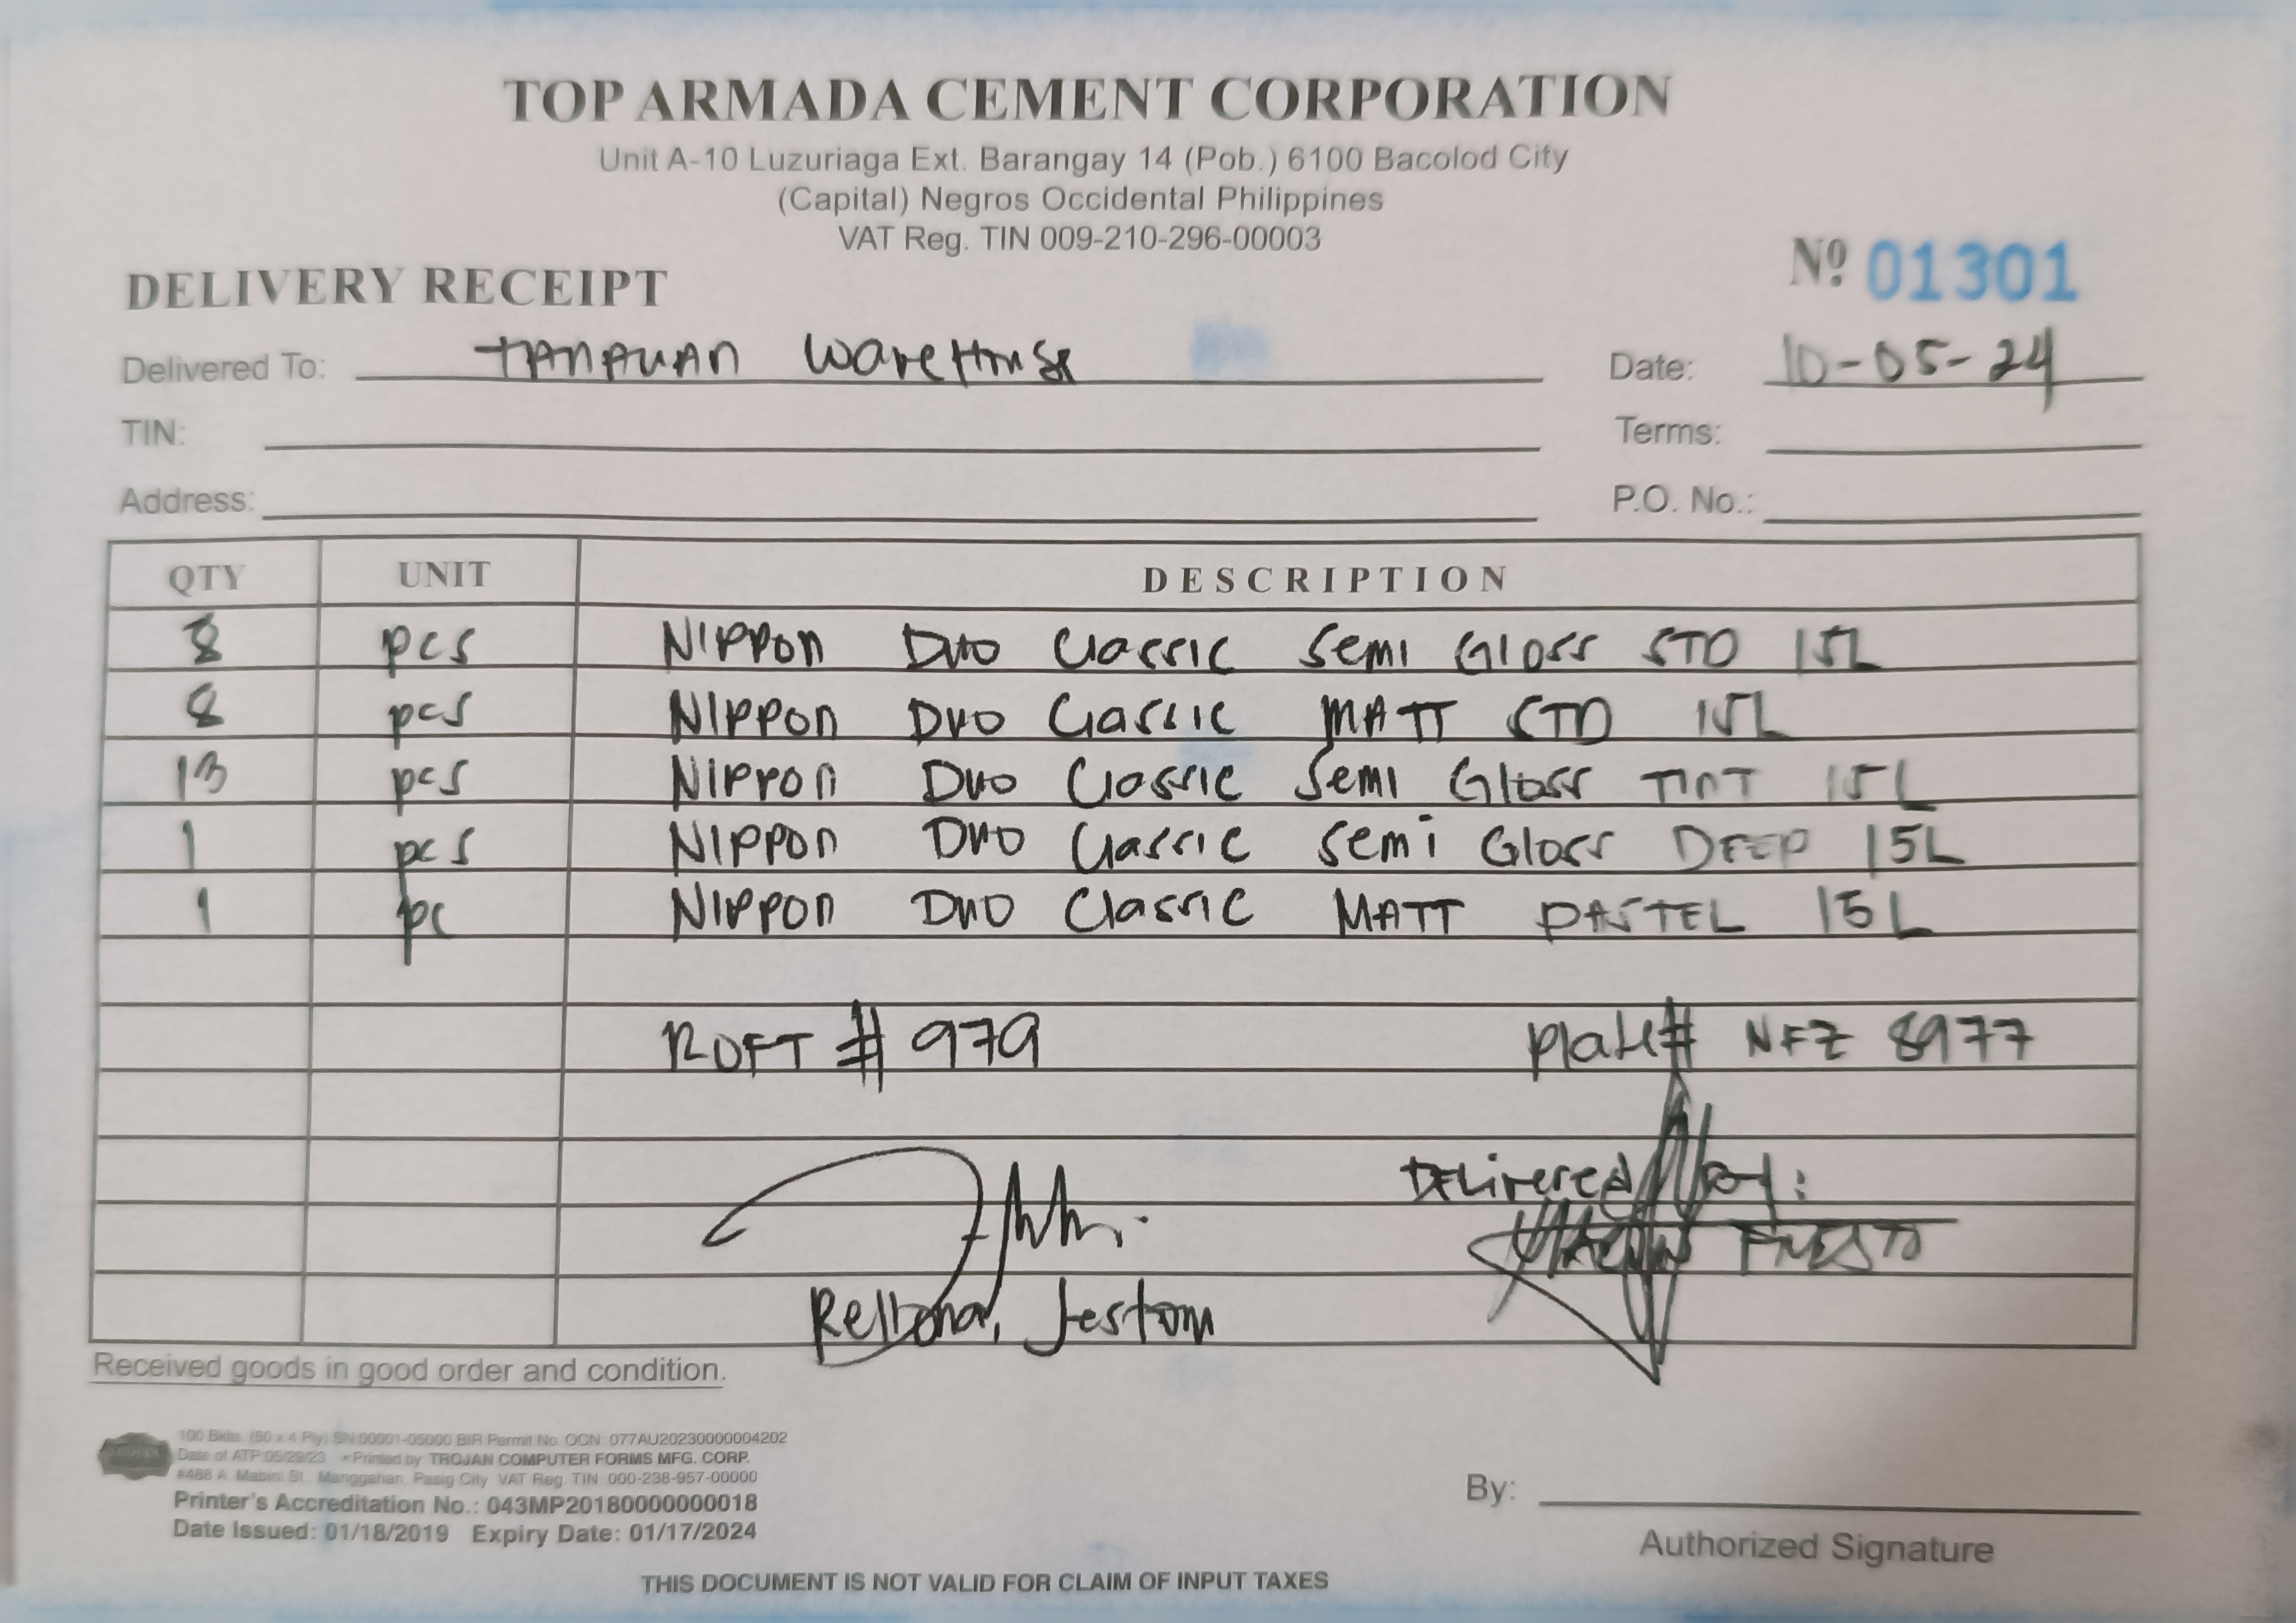 TOP ARMADA CEMENT CORPORATION
Unit A-10 Luzuriaga Ext. Barangay 14 (Pob.) 6100 Bacolod City
(Capital) Negros Occidental Philippines
VAT Reg. TIN 009-210-296-00003
DELIVERY RECEIPT
Nº 01301
Delivered To: TANAUAN WareHouse
Date: 10-05-24
TIN:
Terms:
Address:
P.O. No.:
QTY UNIT DESCRIPTION
8 pcs NIPPON DUO Classic Semi Gloss STD 15L
8 pcs NIPPON DUO Classic MATT STD 15L
13 pcs NIPPON DUO Classic Semi Gloss TINT 15L
1 pcs NIPPON DUO Classic Semi Gloss DEEP 15L
1 pc NIPPON DUO Classic MATT PASTEL 15L
ROFT # 979 Plate# NFZ 8977
Delivered by:
Rellona, Jestom
Received goods in good order and condition.
100 Bklts. (50 x 4 Ply) SN:00001-05000 BIR Permit No. OCN: 077AU20230000004202
Date of ATP:05/29/23 * Printed by TROJAN COMPUTER FORMS MFG. CORP.
#488 A. Mabini St., Manggahan, Pasig City VAT Reg. TIN: 000-238-957-00000
Printer's Accreditation No.: 043MP20180000000018
Date Issued: 01/18/2019 Expiry Date: 01/17/2024
By:
Authorized Signature
THIS DOCUMENT IS NOT VALID FOR CLAIM OF INPUT TAXES